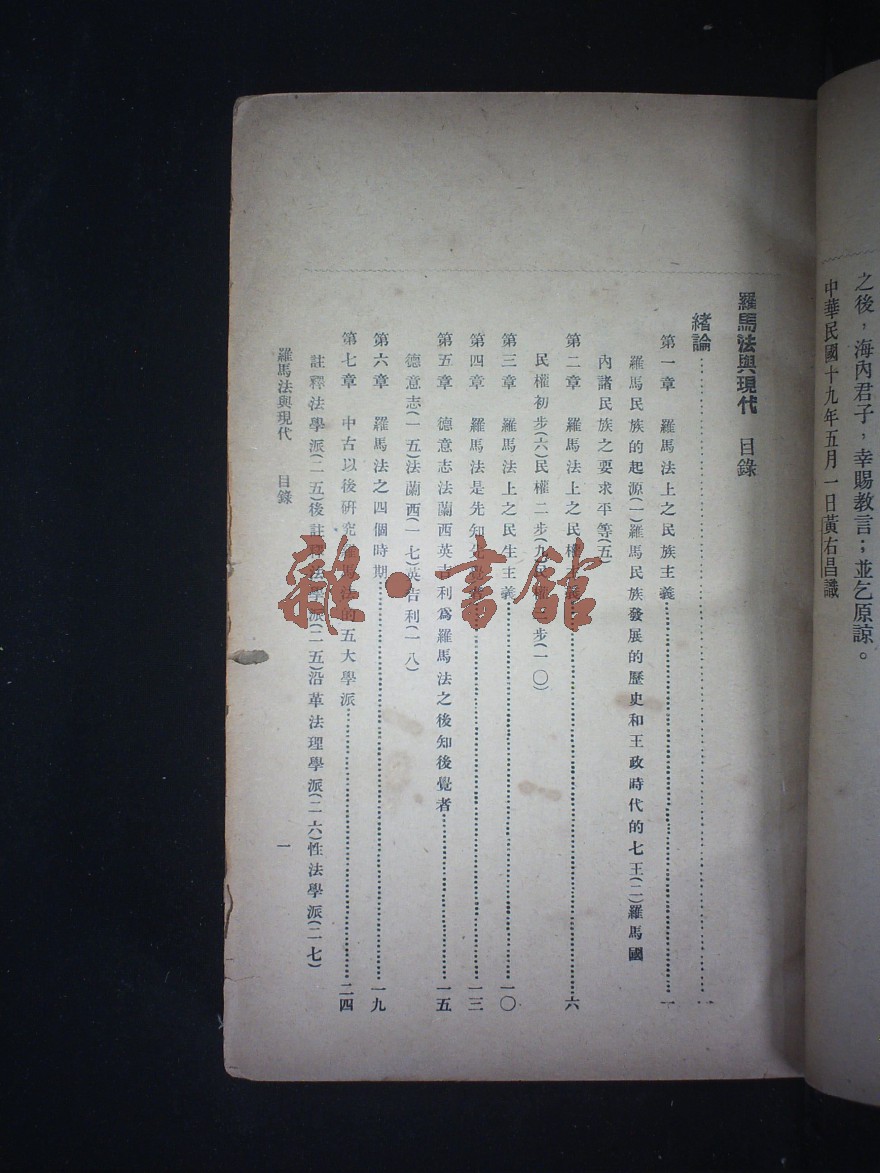 之後，海內君子，幸賜教言；並乞原諒。
中華民國十九年五月一日黃右昌識
羅馬法與現代　目錄
緒論……一
第一章　羅馬法上之民族主義……一
羅馬民族的起源(一)羅馬民族發展的歷史和王政時代的七王(二)羅馬國
內諸民族之要求平等(五)
第二章　羅馬法上之民權主義……六
民權初步(六)民權二步(九)民權三步(一〇)
第三章　羅馬法上之民生主義……一〇
第四章　羅馬法是先知先覺者……一三
第五章　德意志法蘭西英吉利爲羅馬法之後知後覺者……一五
德意志(一五)法蘭西(一七)英吉利(一八)
第六章　羅馬法之四個時期……一九
第七章　中古以後研究羅馬法的五大學派……二四
註釋法學派(二五)後註釋法學派(二五)沿革法理學派(二六)性法學派(二七)
羅馬法與現代　目錄　一
雜·書館